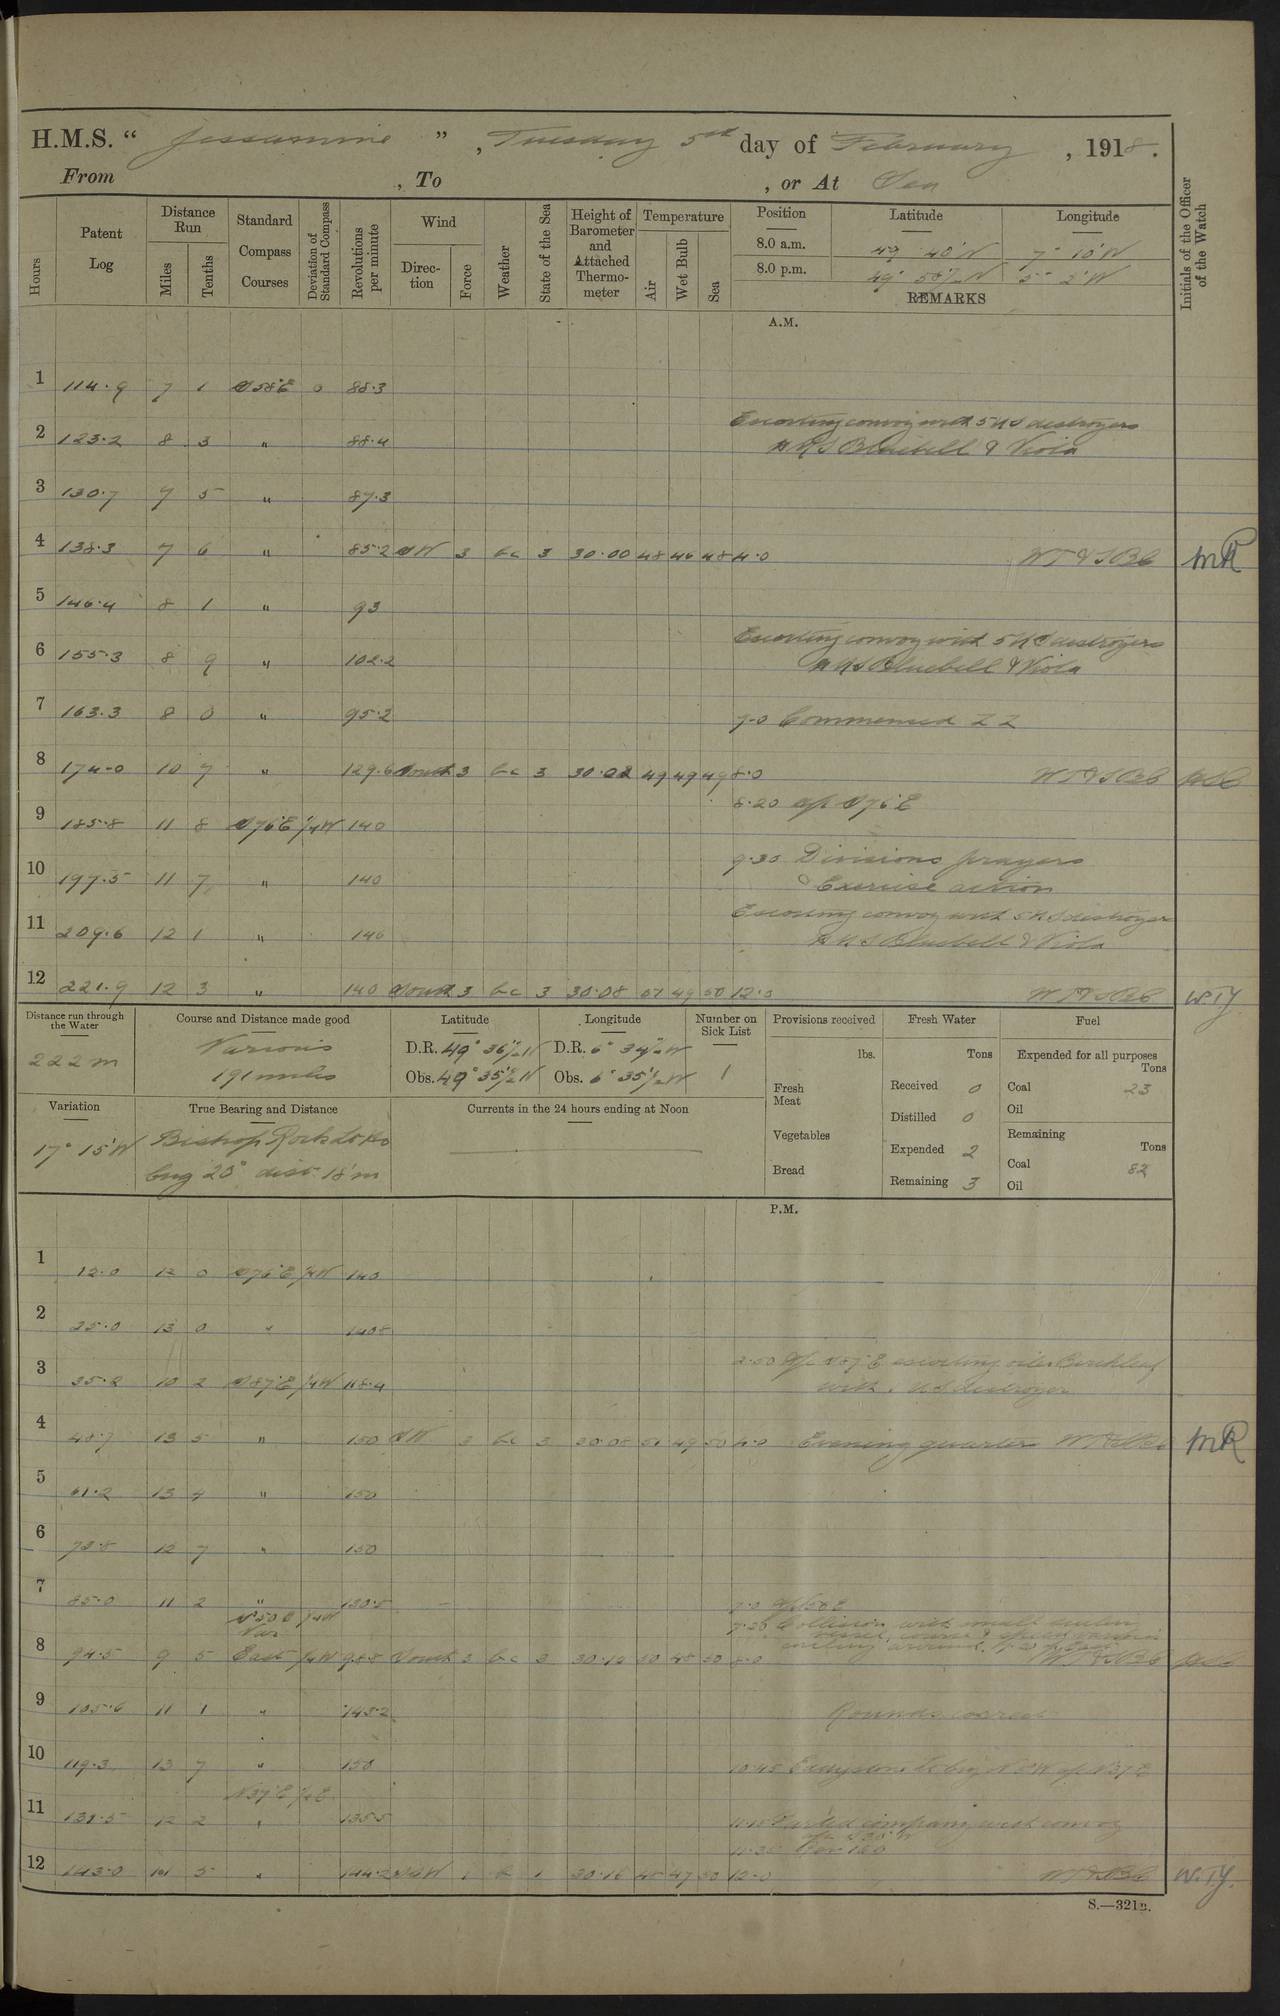 H.M.S. “ Jessamine ”, Tuesday 5th day of February, 1918.
From , To , or At Sea
Hours
Patent Log
Distance Run
Miles
Tenths
Standard Compass Courses
Deviation of Standard Compass
Revolutions per minute
Wind
Direction
Force
Weather
State of the Sea
Height of Barometer and Attached Thermometer
Temperature
Air
Wet Bulb
Sea
Position Latitude Longitude
8.0 a.m. 49 40'N 7° 10'W
8.0 p.m. 49° 5° 2'W
REMARKS
Initials of the Officer of the Watch
A.M.
1 114.9 7 1 S58°E 0 88.3
Escorting convoy with 5 US destroyers
2 123.2 8 3 " 88.4 HMS Bluebell & Viola
3 130.7 7 5 " 87.3
4 138.3 7 6 " 85.2 SW 3 bc 3 30.00 48 46 48 4.0 MR
5 146.4 8 1 " 93
Escorting convoy with 5 US destroyers
6 155.3 8 9 " 102.2 HMS Bluebell & Viola
7 163.3 8 0 " 95.2 7-0 Commenced ZZ
8 174.0 10 7 " 129.6 South 3 bc 3 30.02 49 49 49 8.0
8.20 a/c S76°E
9 185.8 11 8 S76°E 1/4W 140
9.30 Divisions prayers
10 197.5 11 7 " 140 Exercise action
Escorting convoy with 5 US destroyers
11 209.6 12 1 " 140 HMS Bluebell & Viola
12 221.9 12 3 " 140 South 3 bc 3 30.08 51 49 50 12.0 W.T.Y.
Distance run through the Water
222m
Course and Distance made good
Various
191 miles
Latitude
D.R. 49° 36½'N
Obs. 49° 35½'N
Longitude
D.R. 6° 34½'W
Obs. 6° 35½'W
Number on Sick List
1
Provisions received
lbs.
Fresh Meat
Vegetables
Bread
Fresh Water
Tons
Received 0
Distilled 0
Expended 2
Remaining 3
Fuel
Expended for all purposes
Tons
Coal 23
Oil
Remaining
Tons
Coal 82
Oil
Variation
17° 15'W
True Bearing and Distance
Bishop Rock Lt Ho
brg 20° dist 18'm
Currents in the 24 hours ending at Noon
P.M.
1 12.0 12 0 S76°E 1/4W 140
2 25.0 13 0 " 140.8
2.50 a/c S87°E escorting oiler Birchleaf
3 35.2 10 2 S87°E 1/4W 118.4 with US destroyer
4 48.7 13 5 " 150 SW 3 bc 3 30.08 51 49 50 4.0 Evening quarters MR
5 61.2 13 4 " 150
6 73.8 12 7 " 150
7 85.0 11 2 " 130.5
N50E 1/4W
7.20 Collision with small
8 94.5 9 5 East 1/4W 98.8 South 3 bc 3 30.12 50 48 50 8.0
9 105.6 11 1 " 145.2 Rounds correct
10 119.3 13 7 " 150 10.45 Eddystone Lt brg N5°W a/c N37E
N37°E 1/2E
11 131.5 12 2 " 135.5 11.15 Parted company with convoy
11.30
12 143.0 5 " 144.2 1 1 30.16 48 47 50 12.0 W.T.Y.
S.—321B.